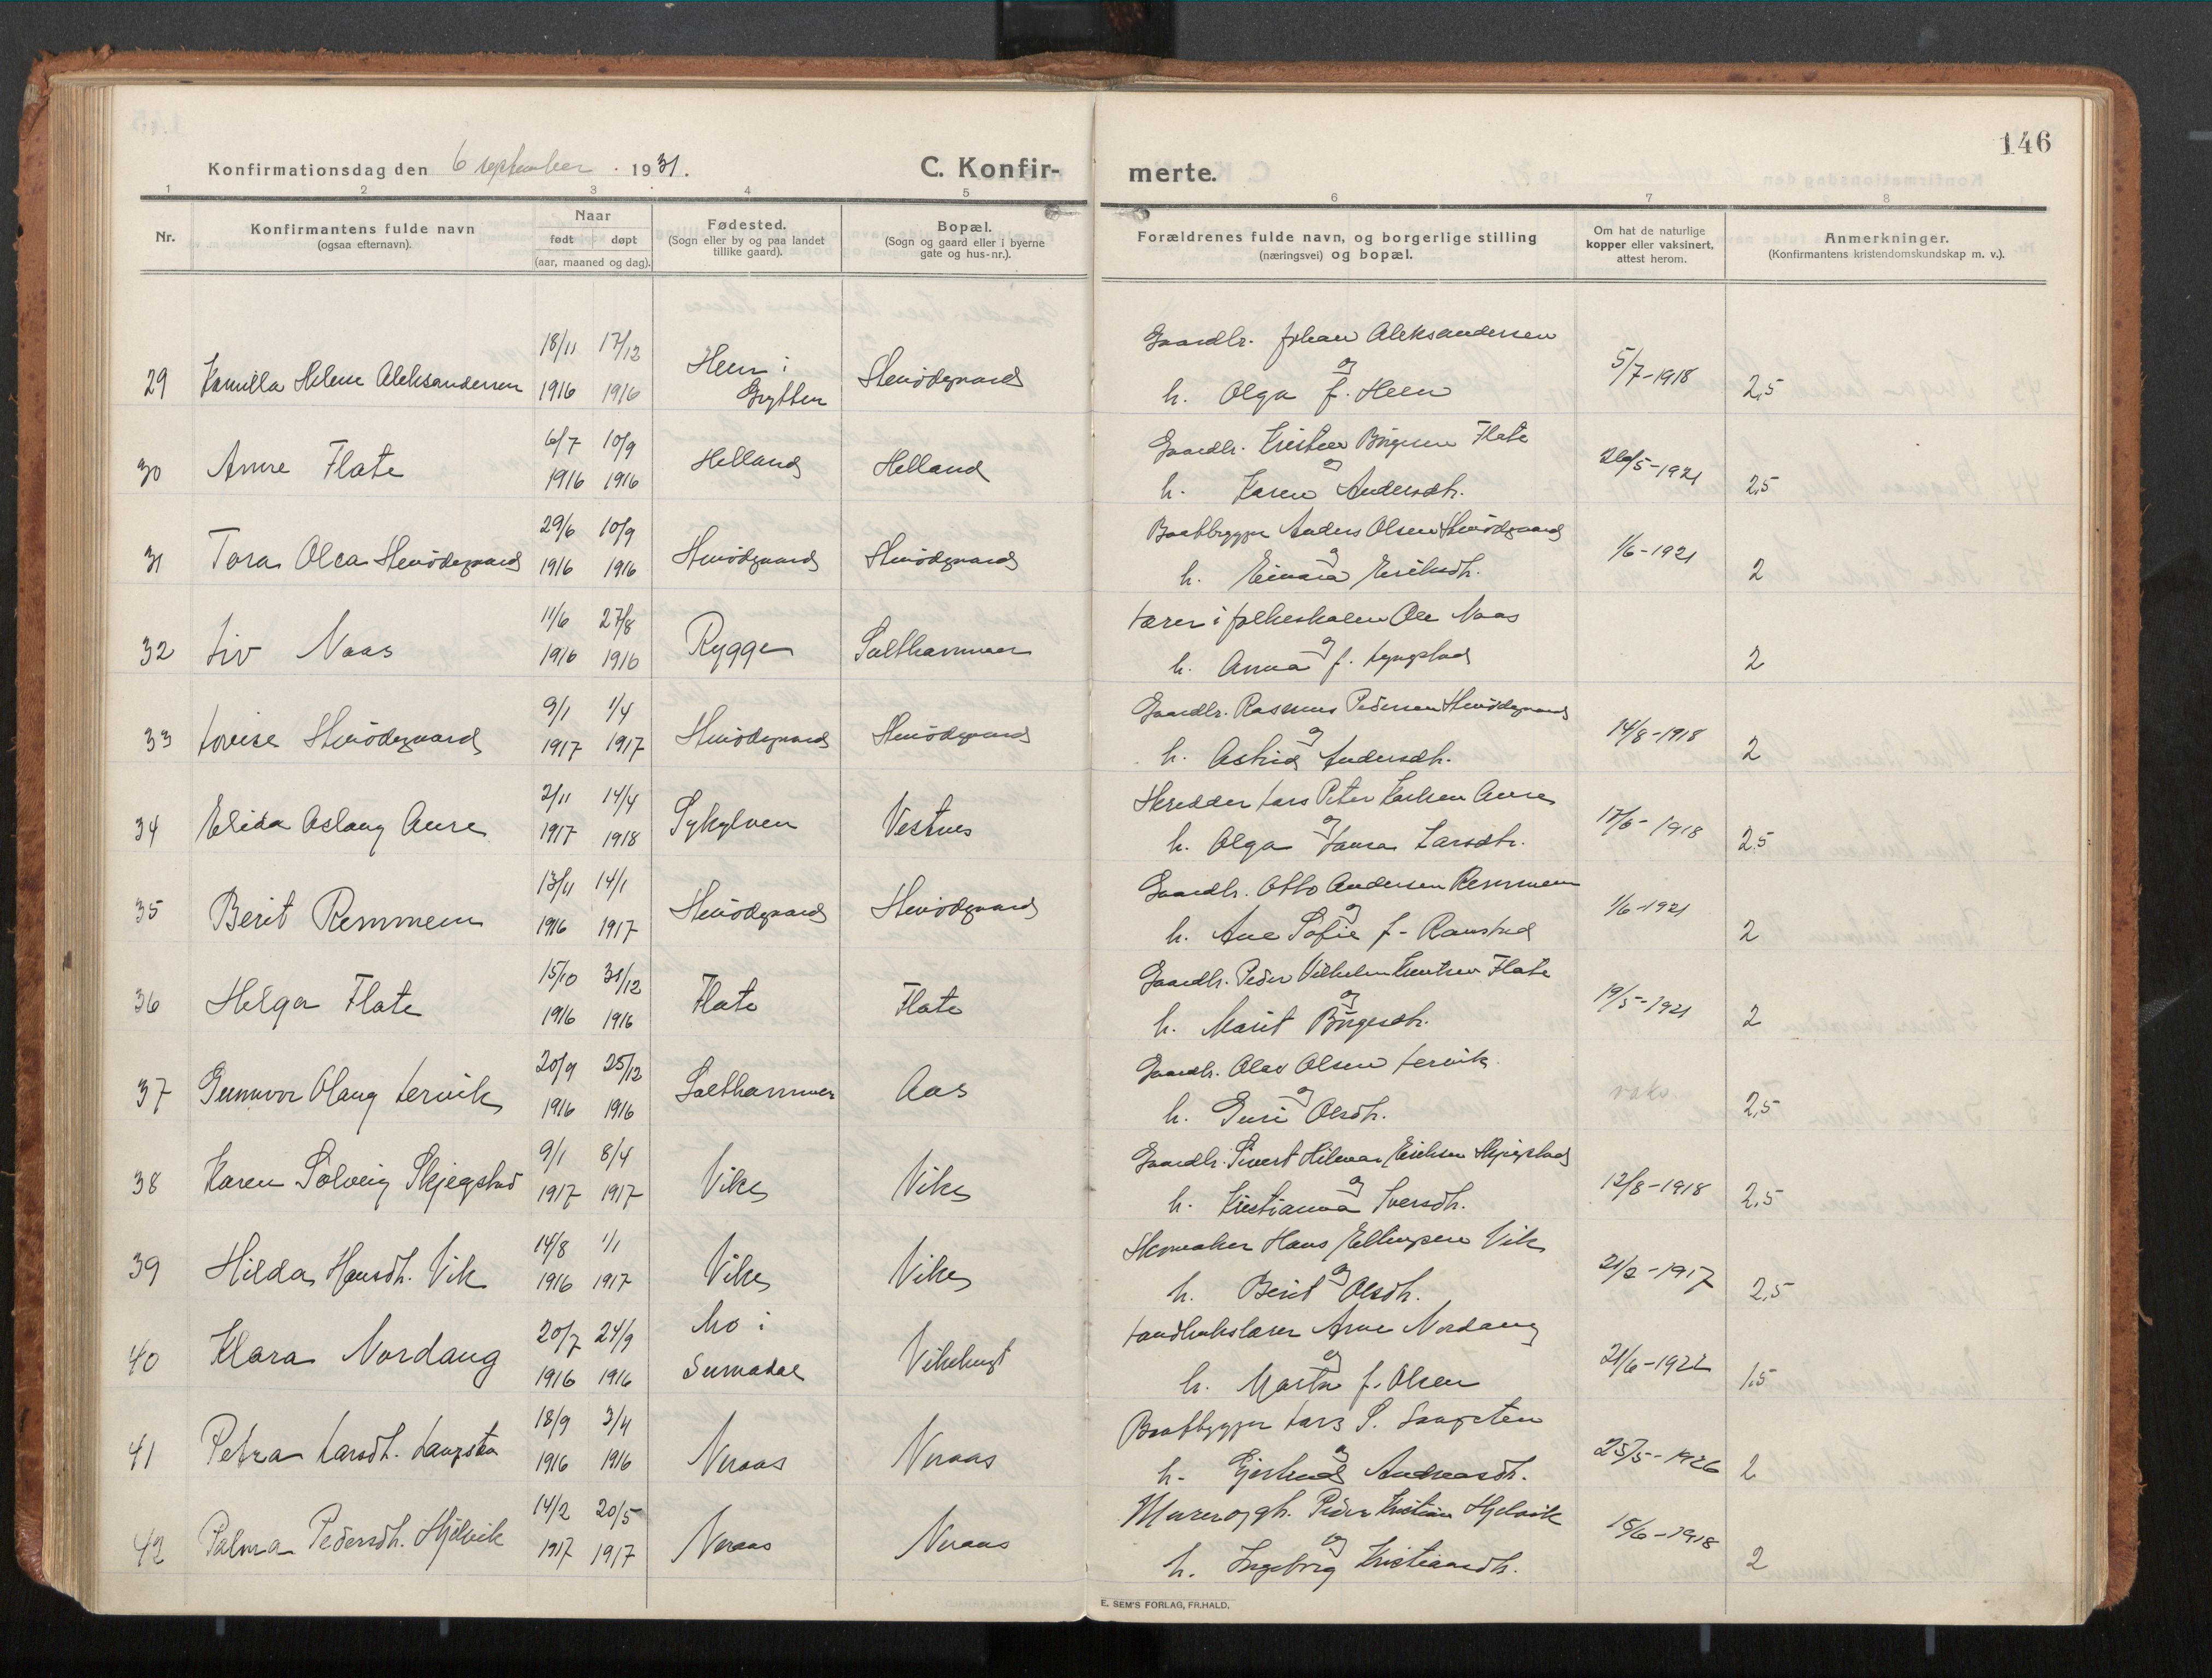 146
Konfirmationsdag den 6 september 1931.
C. Konfirmerte.
1 2 3 4 5 6 7 8
Nr.
Konfirmantens fulde navn
(ogsaa efternavn).
Naar
født døpt
(aar, maaned og dag).
Fødested.
(Sogn eller by og paa landet
tillike gaard).
Bopæl.
(Sogn og gaard eller i byerne
gate og hus-nr.).
Forældrenes fulde navn, og borgerlige stilling
(næringsvei) og bopæl.
Om hat de naturlige
kopper eller vaksinert,
attest herom.
Anmerkninger.
(Konfirmantens kristendomskundskap m. v.).
18/11 17/12 Heen i Gaardbr. Johan Aleksandersen
og
29 Kamilla Helene Aleksandersen 1916 1916 Grytten h. Olga f. Heen 5/7-1918 2,5
6/7 10/9 Gaardbr. Flate
og
30 Anne Flate 1916 1916 Helland Helland h. Karen Andersdtr. 20/5-1921 2,5
29/6 10/9 Baatbygger Anders Olsen
og
31 Tora Olea 1916 1916 h. Einara Eriksdtr. 1/6-1921 2
11/6 27/8 Lærer i folkeskolen Ole Naas
og
32 Liv Naas 1916 1916 Rygge Salthammer h. Anna f. Lyngstad 2
9/1 1/4 Gaardbr. Rasmus Pedersen
og
33 Lovise 1917 1917 h. Astrid Andersdtr. 14/8-1918 2
2/11 14/4 Skredder Lars Peter Karlsen Aure
og
34 Elida Aslaug Aure 1917 1918 Sykylven Vestnes h. Olga Larsdtr. 17/6-1918 2,5
13/11 14/1 Gaardbr. Otto Andersen Remmem
og
35 Berit Remmem 1916 1917 h. Ane Sofie f. 1/6-1921 2
15/10 31/12 Gaardbr. Peder Vilhelm Knutsen Flate
og
36 Helga Flate 1916 1916 Flate Flate h. Marit 19/5-1921 2
20/9 25/12 Gaardbr. Olav Olsen Lervik
og
37 Gunnvor Olaug Lervik 1916 1916 Salthammer Aas h. Guri Olsdtr. vaks. 2,5
9/1 8/4 Gaardbr. Sivert Hilmar Eriksen Skjegstad
og
38 Karen Solveig Skjegstad 1917 1917 Vike Vike h. Kristianna Iversdtr. 12/8-1918 2,5
14/8 1/1 Skomaker Hans Ellingsen Vik
og
39 Hilda Hansdtr. Vik 1916 1917 Vike Vike h. Berit Olsdtr. 21/2-1917 2,5
20/7 24/9 Mo i Landbrukslærer Arne Nordang
og
40 Klara Nordang 1916 1916 Surnadal Vikebugt h. Marta f. Olsen 21/6-1922 1,5
18/9 3/4 Baatbygger Lars S.
og
41 Petra Larsdtr. 1916 1916 Neraas Neraas h. Gjertrud Andreasdtr. 25/5-1926 2
14/2 20/5 Murer og gbr. Peder Kristian Hjelvik
og
42 Palma Pedersdtr. Hjelvik 1917 1917 Neraas Neraas h. Ingeborg Kristiansdtr. 15/6-1918 2
E. SEM'S FORLAG, FR.HALD.